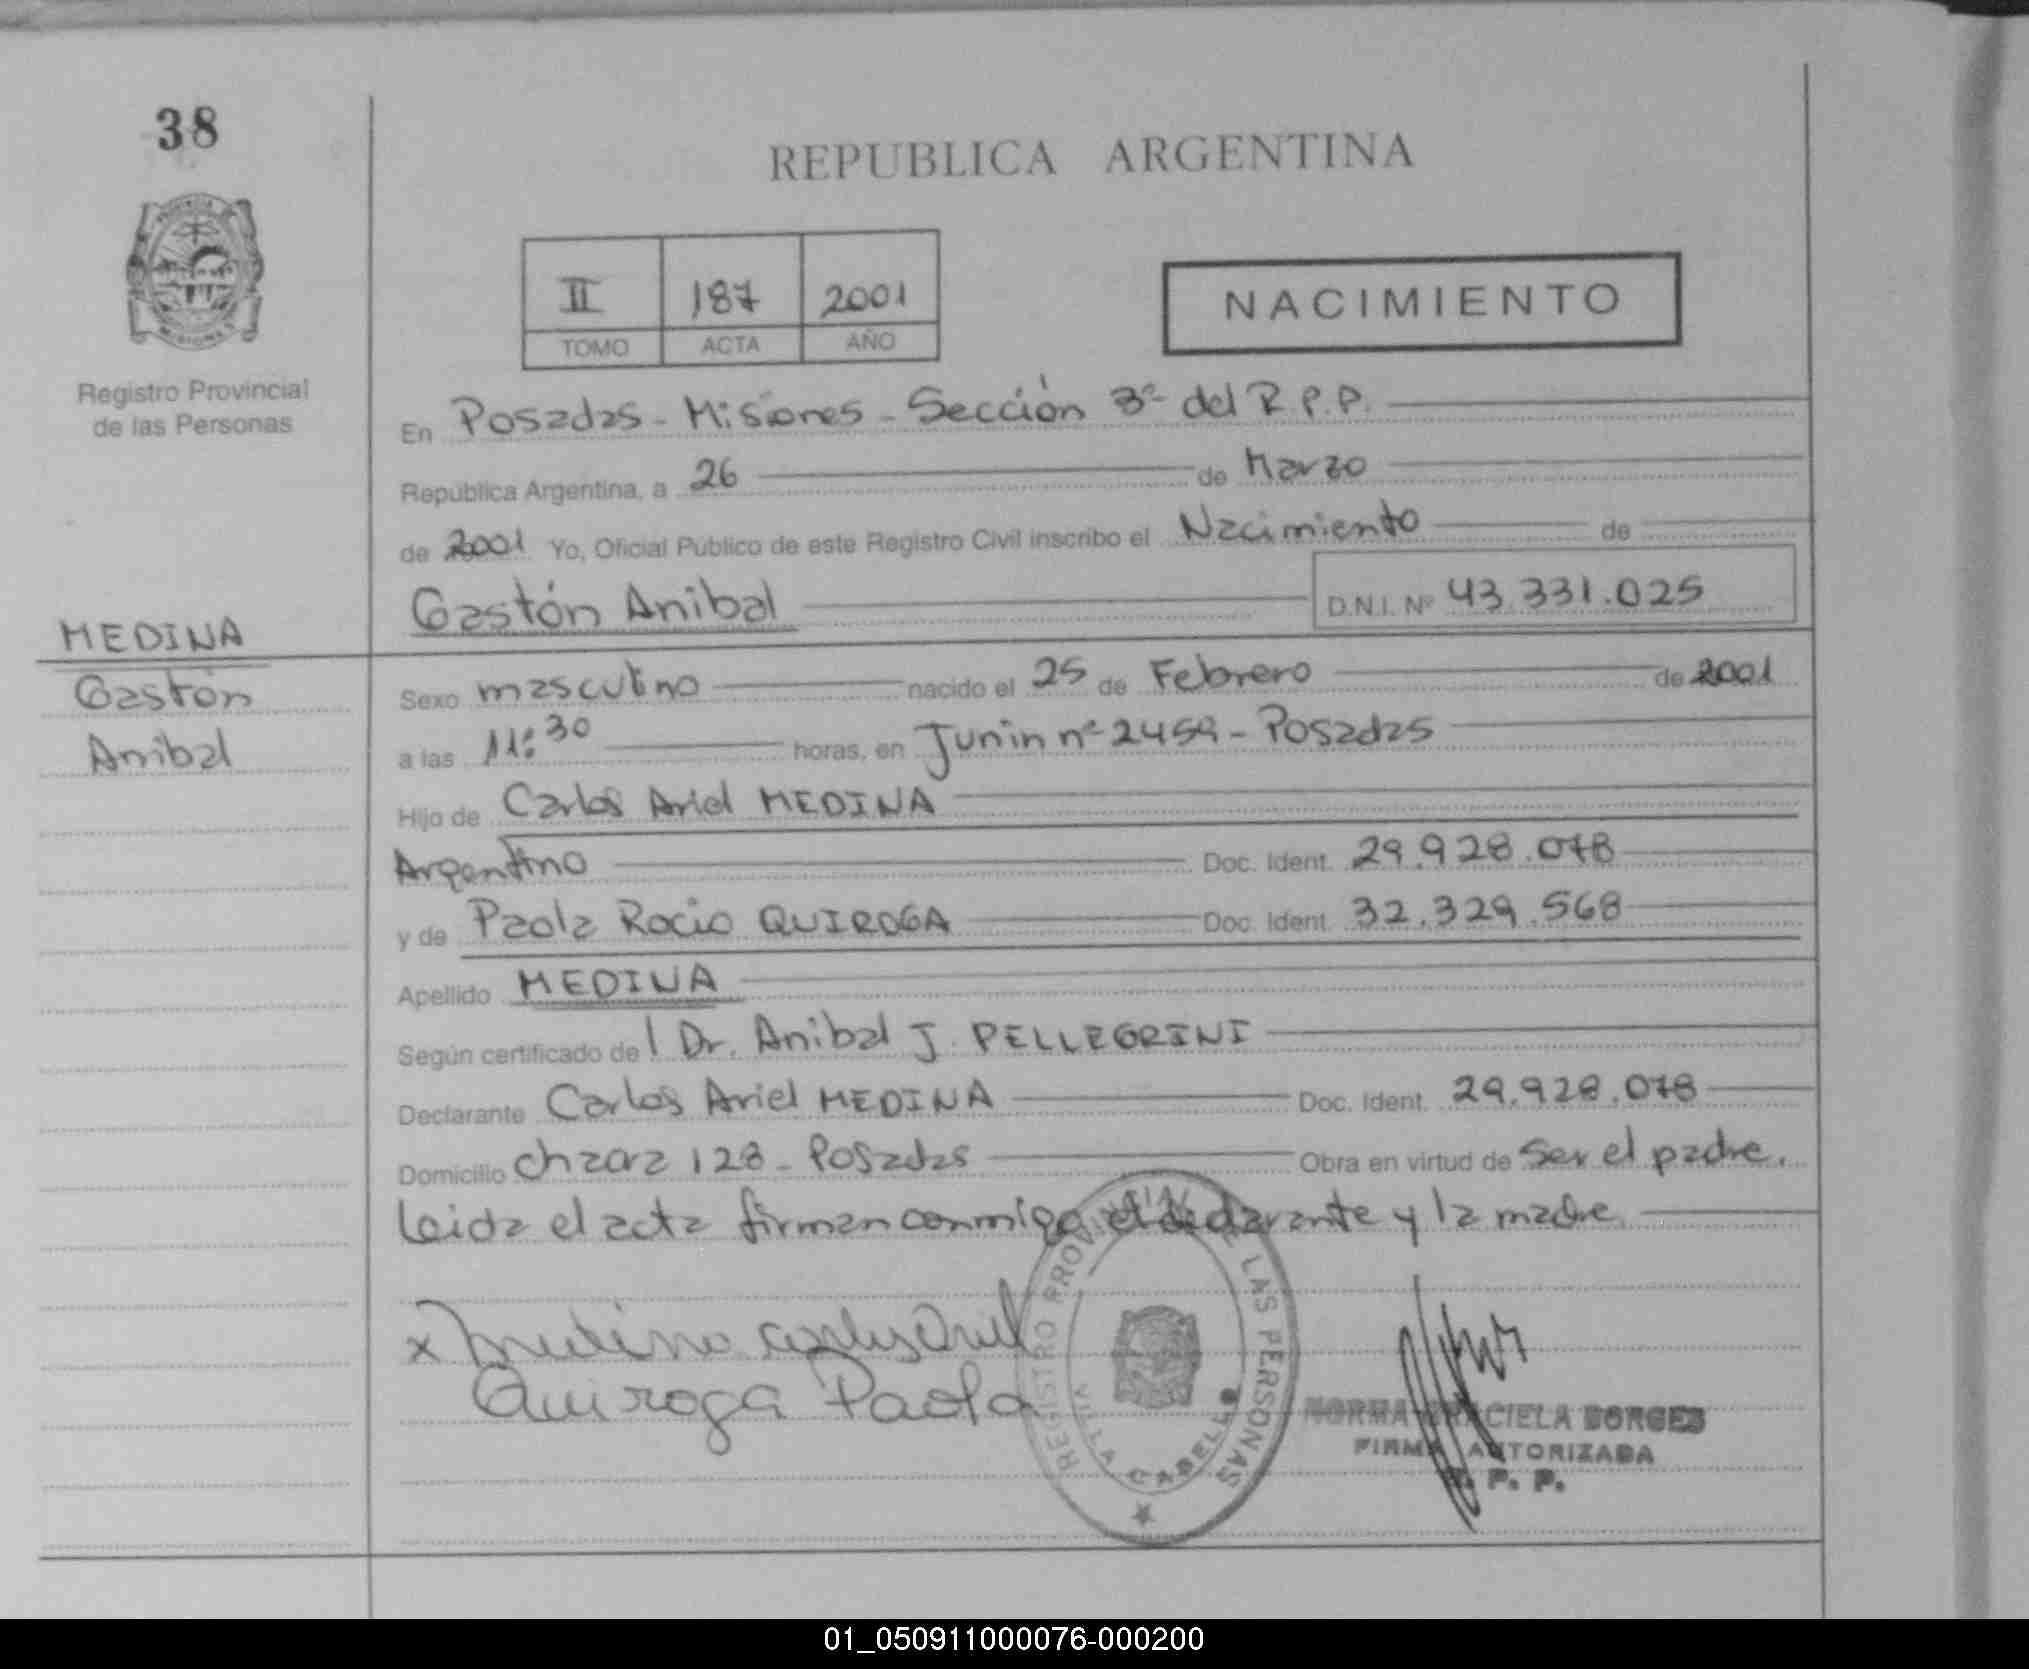 38
REPUBLICA ARGENTINA
II 187 2001
TOMO ACTA AÑO
NACIMIENTO
Registro Provincial
de las Personas
En Posadas - Misiones - Sección 3ª del R.P.P.
República Argentina, a 26 de Marzo
de 2001 Yo, Oficial Público de este Registro Civil inscribo el Nacimiento de
Gastón Anibal D.N.I. Nº 43.331.025
MEDINA
Gastón
Anibal
Sexo masculino nacido el 25 de Febrero de 2001
a las 11:30 horas, en Junin nº 2459 - Posadas
Hijo de Carlos Ariel MEDINA
Argentino Doc. Ident. 29.928.078
y de Paola Rocio QUIROGA Doc. Ident. 32.329.568
Apellido MEDINA
Según certificado de l Dr. Anibal J. PELLEGRINI
Declarante Carlos Ariel MEDINA Doc. Ident. 29.928.078
Domicilio Chacra 128 - Posadas Obra en virtud de ser el padre.
Leida el acta firman conmigo el declarante y la madre
x Medina Carlos Ariel
Quiroga Paola
REGISTRO PROVINCIAL DE LAS PERSONAS
VILLA CABELLO
NORMA GRACIELA BORGES
FIRMA AUTORIZADA
R. P. P.
01_050911000076-000200